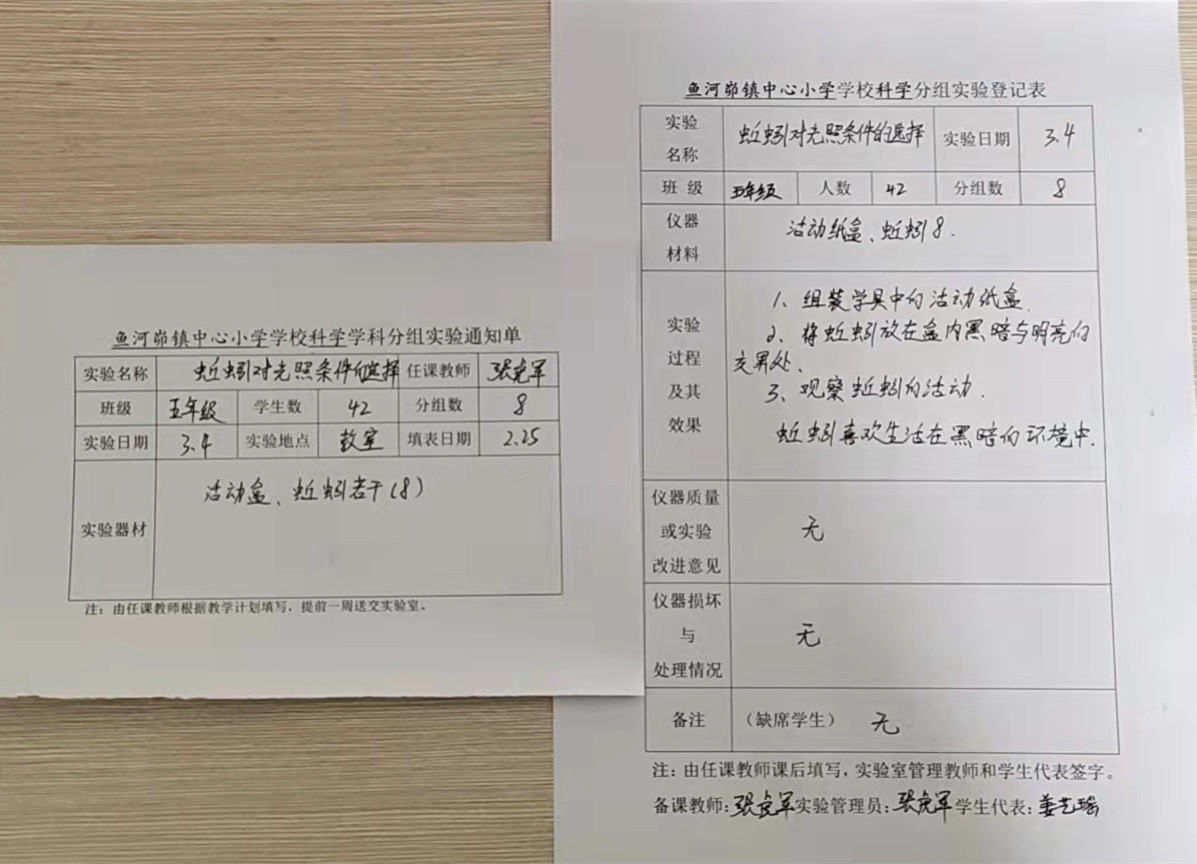 鱼河峁镇中心小学学校科学学科分组实验通知单
实验名称 蚯蚓对光照条件的选择 任课教师 张虎军
班级 五年级 学生数 42 分组数 8
实验日期 3.4 实验地点 教室 填表日期 2.25
实验器材 活动盒、蚯蚓若干(8)
注：由任课教师根据教学计划填写，提前一周送交实验室。
鱼河峁镇中心小学学校科学分组实验登记表
实验名称 蚯蚓对光照条件的选择 实验日期 3.4
班 级 五年级 人数 42 分组数 8
仪器材料 活动纸盒、蚯蚓8.
实验过程及其效果
1、组装学具中的活动纸盒.
2、将蚯蚓放在盒内黑暗与明亮的
交界处、
3、观察蚯蚓的活动.
蚯蚓喜欢生活在黑暗的环境中.
仪器质量或实验改进意见 无
仪器损坏与处理情况 无
备注 （缺席学生） 无
注：由任课教师课后填写，实验室管理教师和学生代表签字。
备课教师：张虎军实验管理员：张虎军学生代表：姜艺瑶